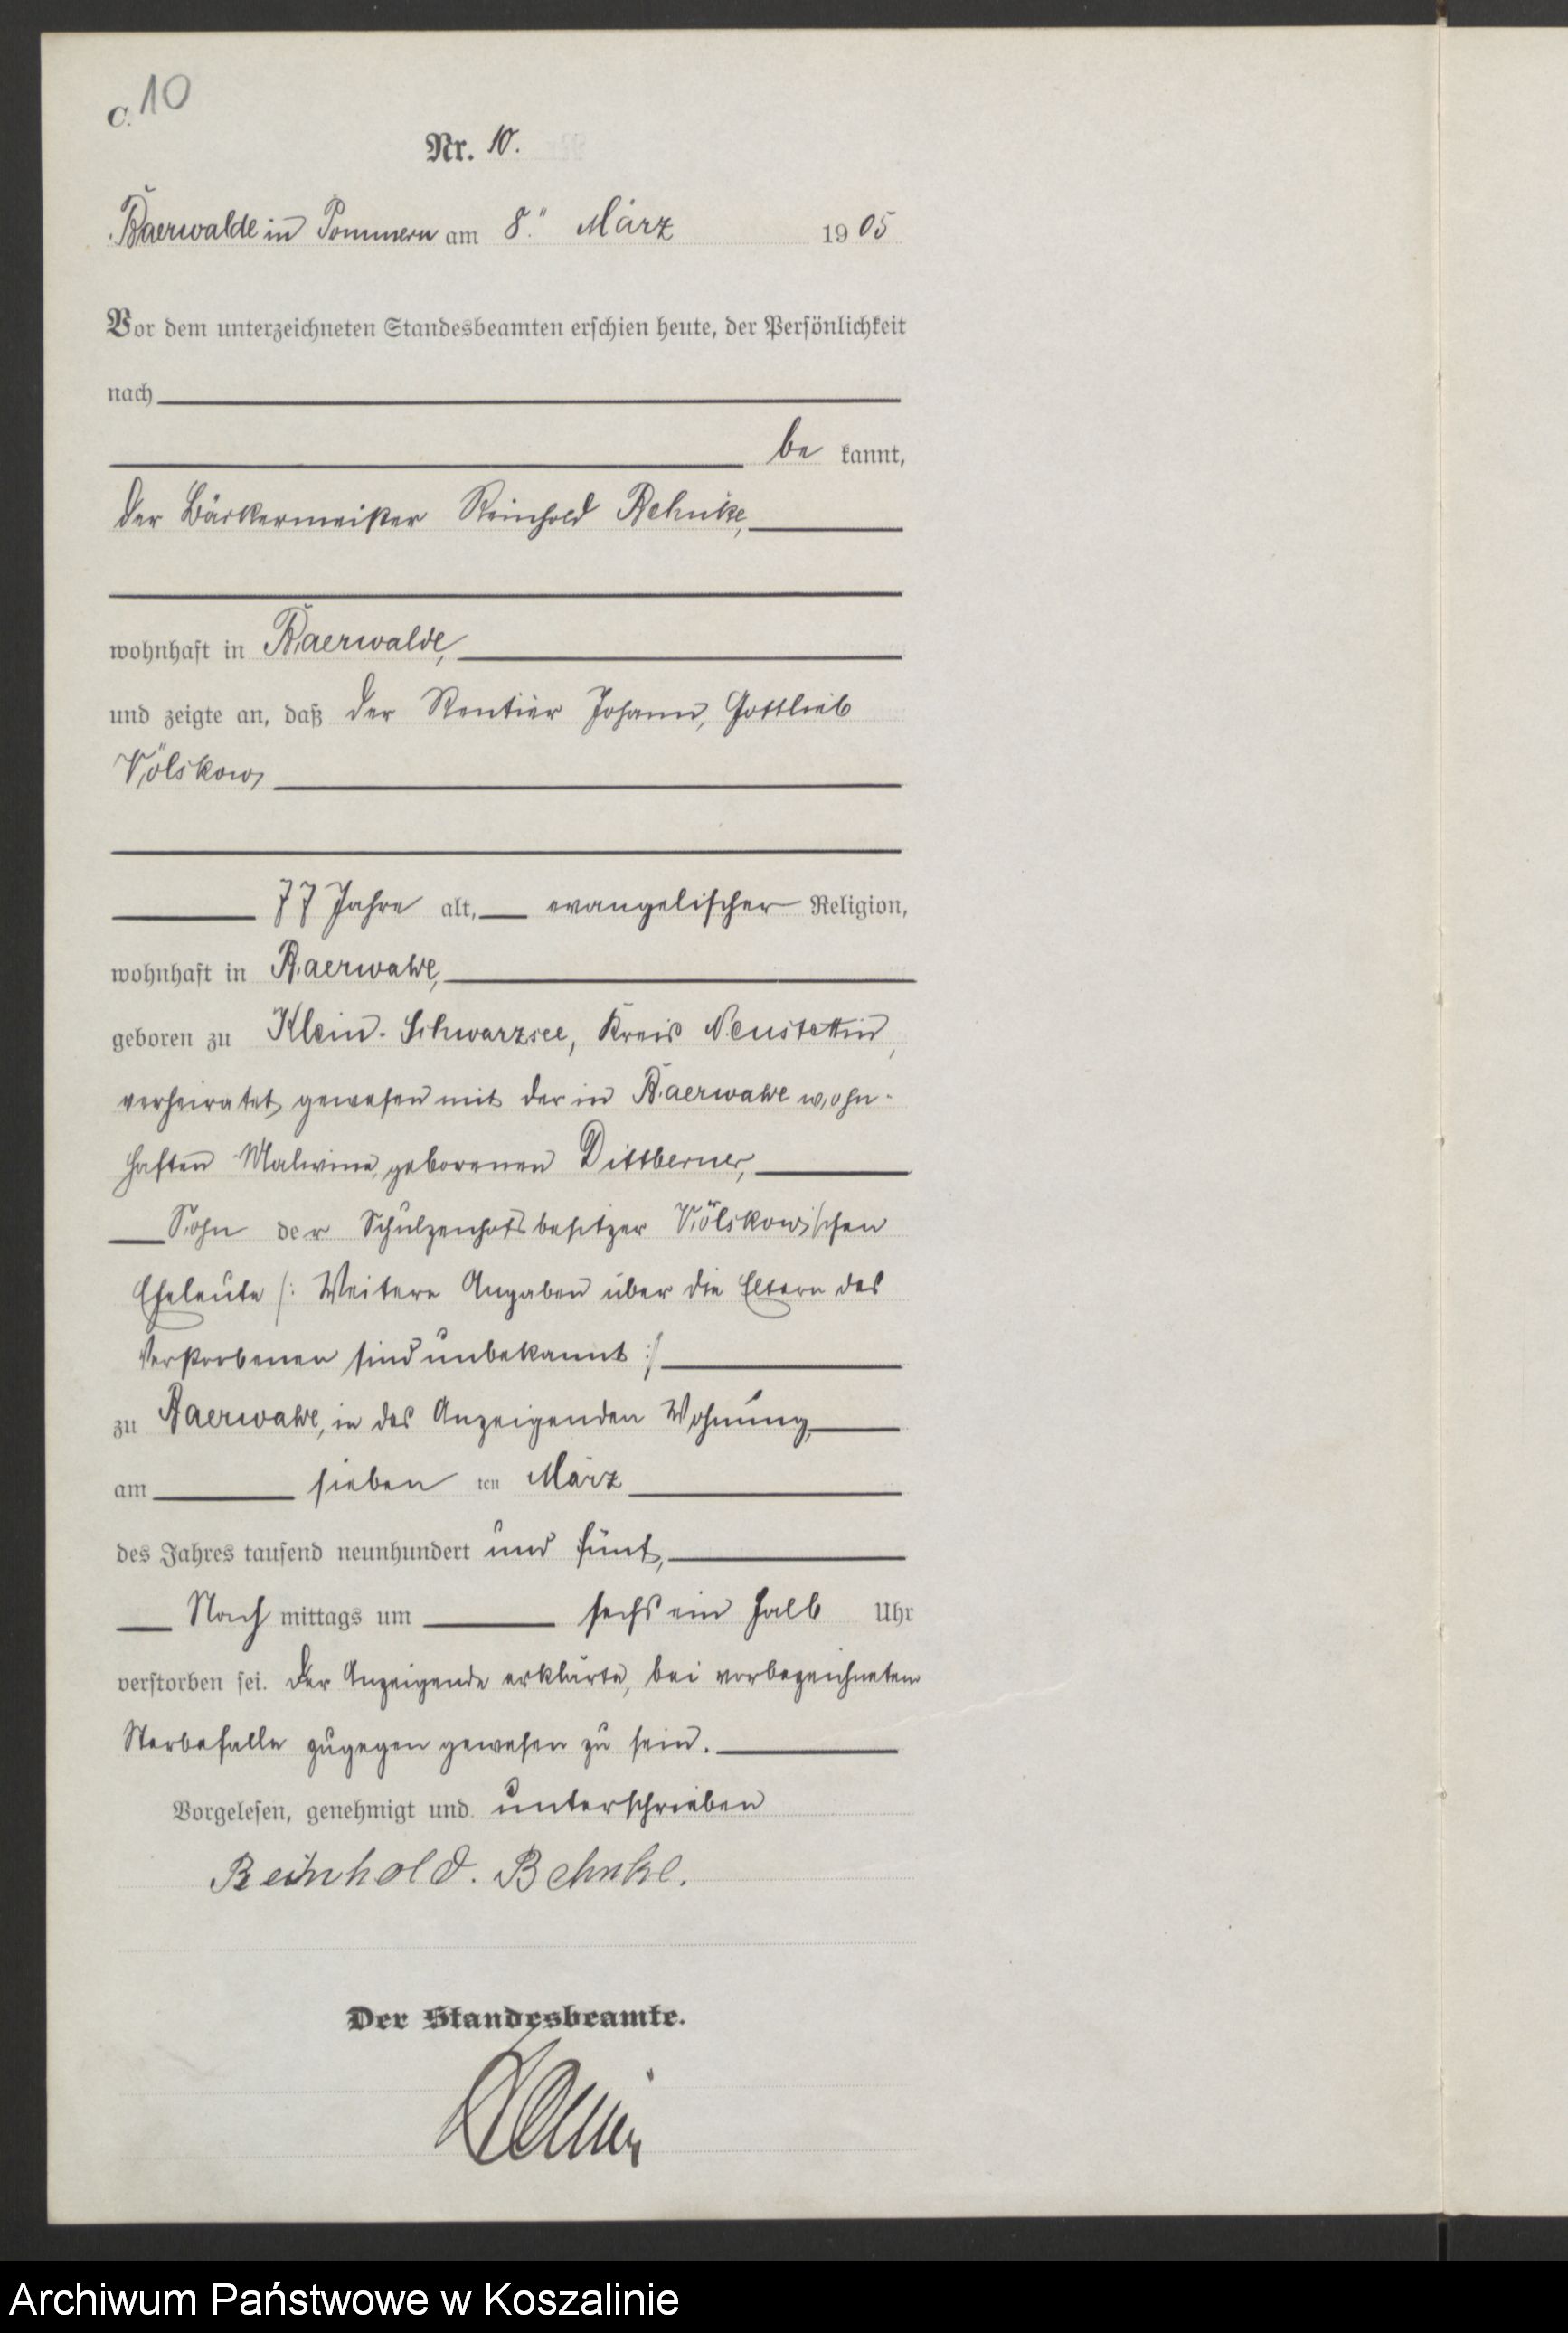 C. 10
Nr. 10.
Baerwalde in Pommern am 8." März 1905
Vor dem unterzeichneten Standesbeamten erschien heute, der Persönlichkeit
nach
be kannt,
der Bäckermeister Reinhold Behnke,
wohnhaft in Baerwalde,
und zeigte an, daß der Rentier Johann, Gottlieb
Völskow,
77 Jahre alt, evangelischer Religion,
wohnhaft in Baerwalde,
geboren zu Klein-Schwarzsee, Kreis Neustettin,
verheiratet gewesen mit der in Baerwalde wohn-
haften Malwine, geborenen Dittberner,
Sohn der Schulzenhofsbesitzer Völskow'schen
Eheleute /: Weitere Angaben über die Eltern des
Verstorbenen sind unbekannt :/
zu Baerwalde, in des Anzeigenden Wohnung,
am sieben ten März
des Jahres tausend neunhundert und fünf,
Nach mittags um sechs ein halb Uhr
verstorben sei. Der Anzeigende erklärte, bei vorbezeichnetem
Sterbefalle zugegen gewesen zu sein.
Vorgelesen, genehmigt und unterschrieben
Reinhold. Behnke.
Der Standesbeamte.
Archiwum Państwowe w Koszalinie